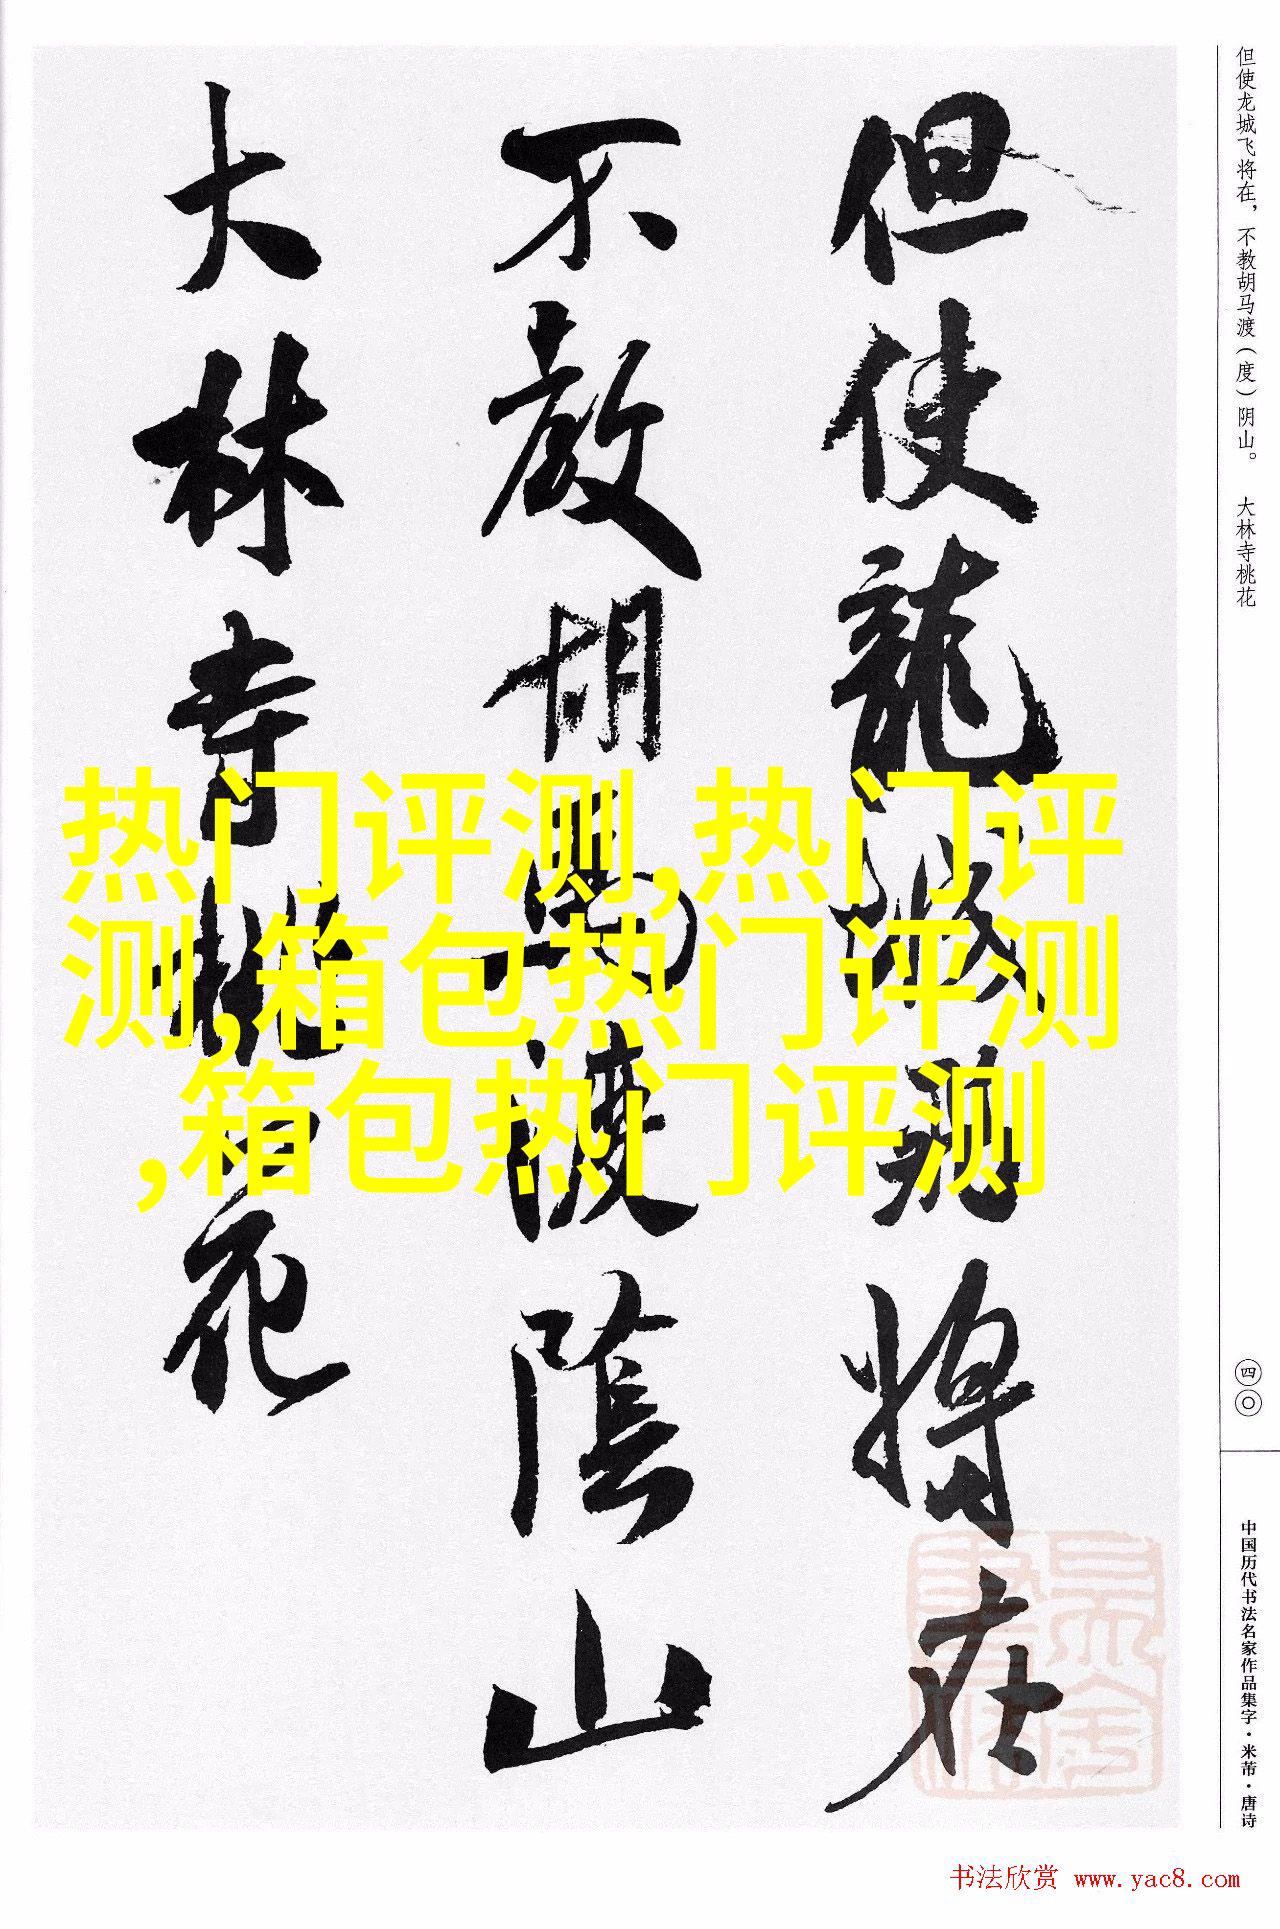 但使龙城飞将在，不教胡马渡（度）阴山。 大林寺桃花
但使龍城飛將在
不教胡馬渡陰山
大林寺桃花
热门评测,热门评
测,箱包热门评测
,箱包热门评测
四〇
中国历代书法名家作品集字·米芾·唐诗
书法欣赏 www.yac8.com